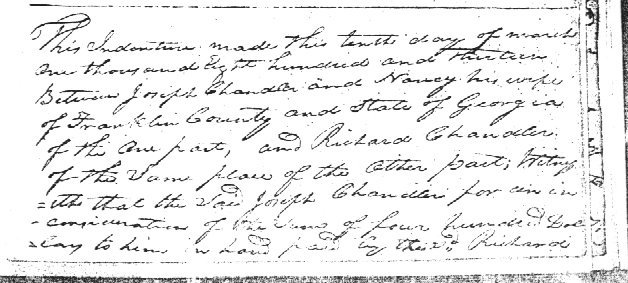 This Indenture made this tenth day of march
One thousand Eight hundred and thirteen
Between Joseph Chandler and Nancy his wife
of Franklin County and State of Georgia
of the One part, and Richard Chandler
of the Same place of the Other part; Witnes
=eth that the said Joseph Chandler for an in
-consideration of the sum of four hundred Dol
=lars to him in hand paid by the sd Richard